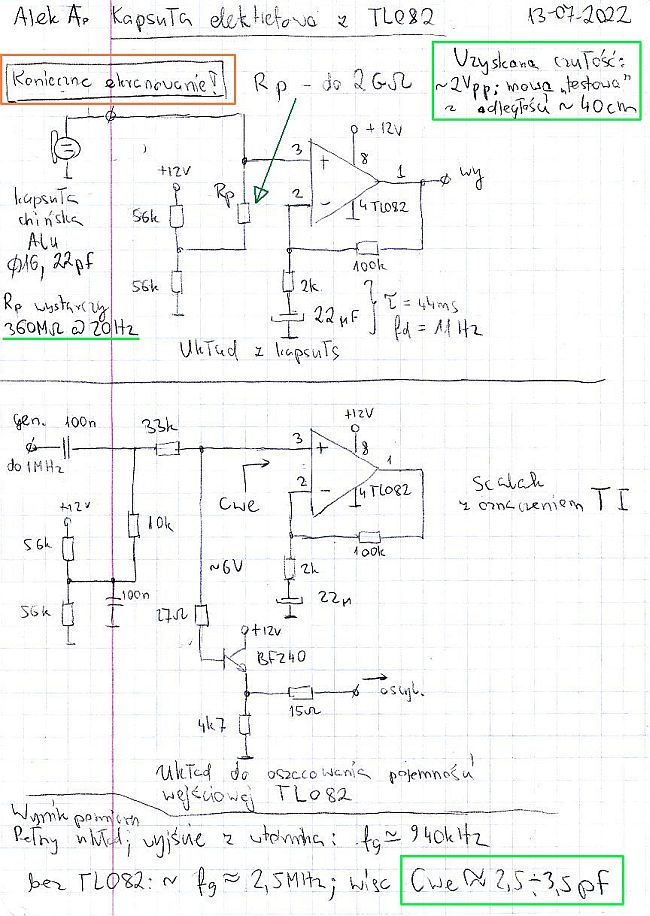 Alek A. Kapsuła elektretowa z TL082 13-07-2022
Konieczne ekranowanie!
Rp - do 2GΩ
Uzyskana czułość:
~2Vpp; mowa „testowa"
z odległości ~40cm
+12V
3
8
1
wy
2
4 TL082
+12V
Rp
56k
56k
100k
2k
22µF
τ = 44ms
fd = 11Hz
kapsuła
chińska
Alu
Φ16, 22pf
Rp wystarczy
360MΩ @ 20Hz
Układ z kapsułą
gen.
100n
33k
do 1MHz
+12V
3
8
1
2
4 TL082
Cwe
Scalak
z oznaczeniem TI
+12V
10k
56k
56k
100n
~6V
100k
2k
22µ
27Ω
+12V
BF240
15Ω
oscyl.
4k7
Układ do oszacowania pojemności
wejściowej TL082
Wynik pomiaru
Pełny układ; wyjście z wtórnika: fg ≃ 940kHz
bez TL082: ~ fg ≈ 2,5MHz; więc Cwe ≈ 2,5÷3,5pf